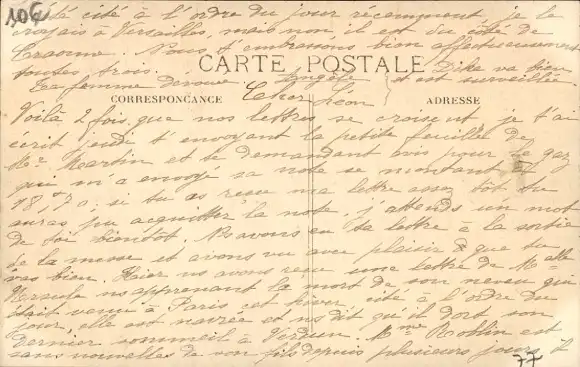 106
été cité à l'ordre du jour récemment, je le
croyais à Versailles, mais non, il est du côté de
Craonne. Nous t'embrassons bien affectueusement
toutes trois. CARTE POSTALE Dike va bien
Ta femme dévouée Angèle et est surveillée
CORRESPONCANCE Cher Léon ADRESSE
Voilà 2 fois que nos lettres se croisent je t'ai
écrit jeudi t'envoyant la petite feuille de
Mr Martin et te demandant avis pour le gaz
qui m'a envoyé sa note se montant à
18f70. si tu as reçu ma lettre assez tôt tu
auras pu acquitter la note. j'attends un mot
de toi bientôt. Ns avons eu ta lettre à la sortie
de la messe et avons vu avec plaisir que tu
vas bien. Hier ns avons reçu une lettre de Melle
Ursule ns apprenant la mort de son neveu qui
était venu à Paris cet hiver, cité à l'ordre du
jour, elle est navrée et ns dit qu'il dort son
dernier sommeil à Verdun. Mme Roblin est
sans nouvelles de son fils depuis plusieurs jours, il
77